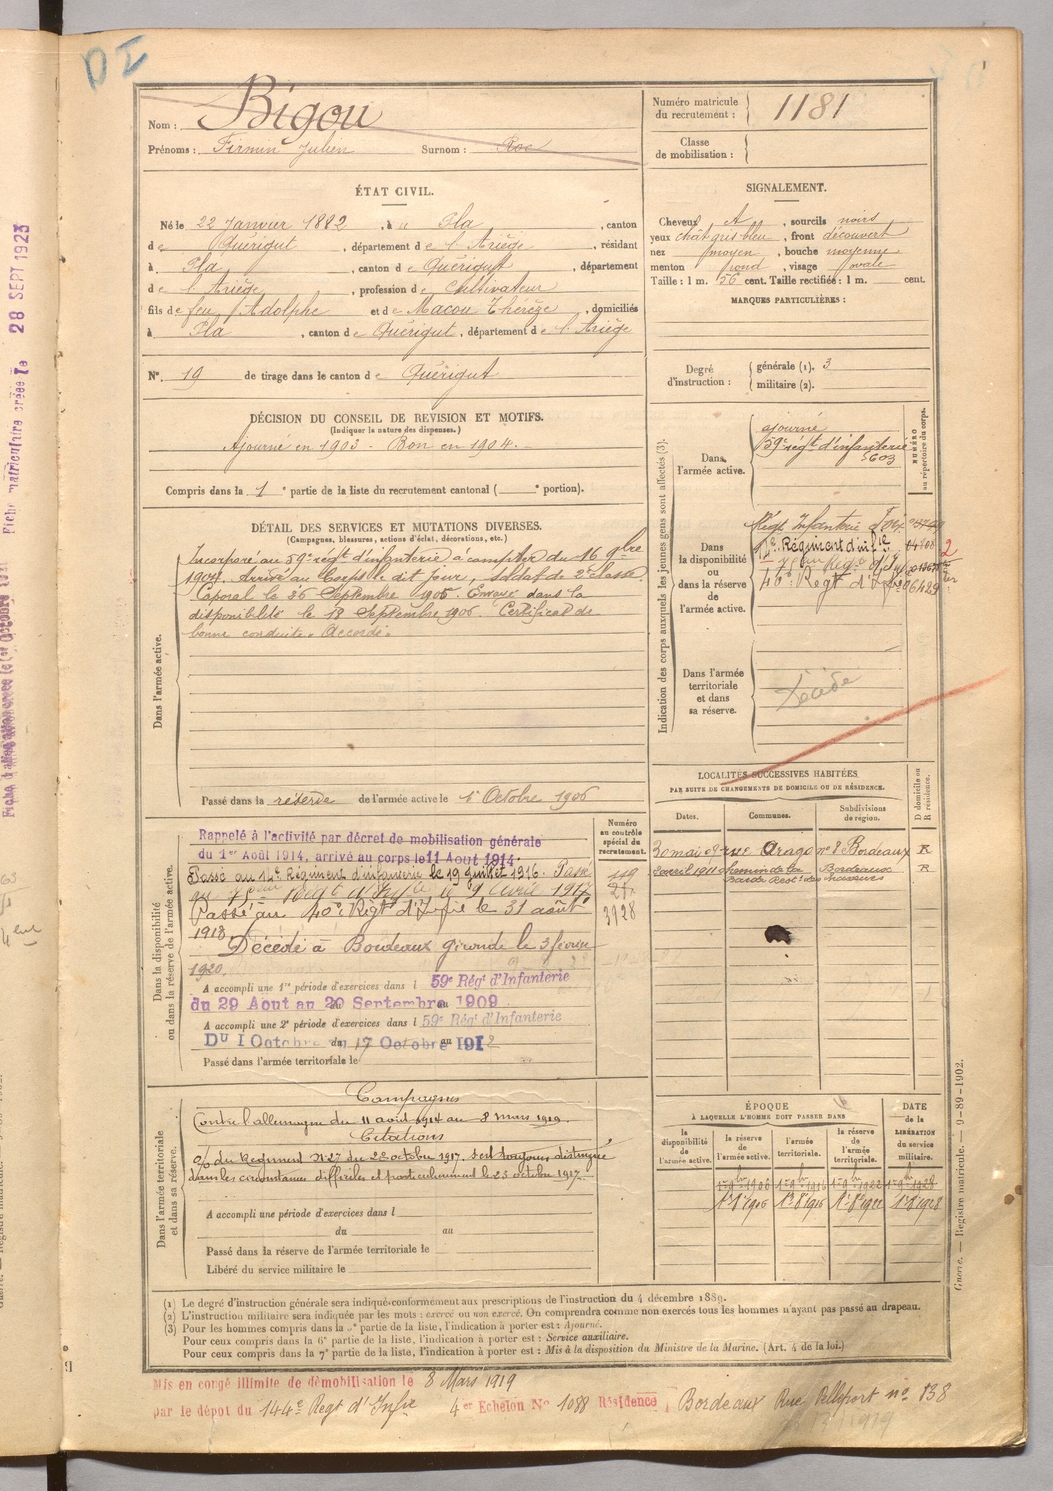 D I
Nom : Bigou
Prénoms : Firmin Julien Surnom : Roc
Numéro matricule du recrutement : 1181
Classe de mobilisation :
ÉTAT CIVIL.
Né le 22 Janvier 1882, à Pla, canton
de Quérigut, département de l'Ariège, résidant
à Pla, canton de Quérigut, département
de l'Ariège, profession de Cultivateur
fils de feu Adolphe et de Macou Thérèze, domiciliés
à Pla, canton de Quérigut, département de l'Ariège
N° 19 de tirage dans le canton de Quérigut
SIGNALEMENT.
Cheveux, sourcils noirs
yeux chat gris bleu, front découvert
nez moyen, bouche moyenne
menton rond, visage ovale
Taille : 1 m. 56 cent. Taille rectifiée : 1 m. cent.
MARQUES PARTICULIÈRES :
Degré d'instruction : générale (1). 3
militaire (2).
DÉCISION DU CONSEIL DE REVISION ET MOTIFS.
(Indiquer la nature des dispenses.)
Ajourné en 1903 - Bon en 1904.
Compris dans la 1e partie de la liste du recrutement cantonal ( e portion).
DÉTAIL DES SERVICES ET MUTATIONS DIVERSES.
(Campagnes, blessures, actions d'éclat, décorations, etc.)
Dans l'armée active.
Incorporé au 59e régt d'infanterie à compter du 16 9bre
1904. Arrivé au Corps le dit jour, soldat de 2e classe.
Caporal le 26 Septembre 1905. Envoyé dans la
disponibilité le 18 Septembre 1906. Certificat de
bonne conduite. Accordé.
Passé dans la réserve de l'armée active le 1er Octobre 1906
Indication des corps auxquels les jeunes gens sont affectés (3).
NUMÉRO au répertoire du corps.
Dans l'armée active.
ajourné
59e régt d'infanterie
5603
Dans la disponibilité ou dans la réserve de l'armée active.
Régt Infanterie
Régiment d'infie
40e Régt d'Infie
Dans l'armée territoriale et dans sa réserve.
Décédé
Dans la disponibilité ou dans la réserve de l'armée active.
Numéro au contrôle spécial du recrutement.
Rappelé à l'activité par décret de mobilisation générale
du 1er Août 1914, arrivé au corps le 11 Aout 1914.
Passé au 14e Régiment d'infanterie le 19 juillet 1916. Passé
au 75eme Régt d'Infie le 9 Avril 1917
Passé au 40e Régt d'Infie le 31 août
1918
3928
Décédé à Bordeaux gironde le 3 février
1920.
A accompli une 1re période d'exercices dans l 59e Régt d'Infanterie
du 29 Aout au 20 Septembre 1909
A accompli une 2e période d'exercices dans l 59e Régt d'Infanterie
Du 1 Octobre au 17 Octobre 1912
Passé dans l'armée territoriale le
LOCALITÉS SUCCESSIVES HABITÉES
PAR SUITE DE CHANGEMENTS DE DOMICILE OU DE RÉSIDENCE.
Dates. Communes. Subdivisions de région. D domicile ou R résidence.
30 mai 09 rue Arago n° 8 Bordeaux R
Bordeaux R
Dans l'armée territoriale et dans sa réserve.
Campagnes
Contre l'allemagne du 11 août 1914 au 8 mars 1919.
Citations
o/o du Régiment N° 27 du 28 octobre 1917. s'est toujours distingué
dans les circonstances difficiles et particulièrement le 23 octobre 1917.
A accompli une période d'exercices dans l
du au
Passé dans la réserve de l'armée territoriale le
Libéré du service militaire le
ÉPOQUE
À LAQUELLE L'HOMME DOIT PASSER DANS
DATE de la LIBÉRATION du service militaire.
la disponibilité de l'armée active. la réserve de l'armée active. l'armée territoriale. la réserve de l'armée territoriale.
(1) Le degré d'instruction générale sera indiqué conformément aux prescriptions de l'instruction du 4 décembre 1889.
(2) L'instruction militaire sera indiquée par les mots : exercé ou non exercé. On comprendra comme non exercés tous les hommes n'ayant pas passé au drapeau.
(3) Pour les hommes compris dans la 5e partie de la liste, l'indication à porter est : Ajourné.
Pour ceux compris dans la 6e partie de la liste, l'indication à porter est : Service auxiliaire.
Pour ceux compris dans la 7e partie de la liste, l'indication à porter est : Mis à la disposition du Ministre de la Marine. (Art. 4 de la loi.)
Mis en congé illimité de démobilisation le 8 Mars 1919
par le dépot du 144e Régt d'Infie 4er Echelon No 1088 Résidence Bordeaux Rue Pelleport no 138
Guerre. — Registre matricule. — 9-89-1902.
28 SEPT 1923